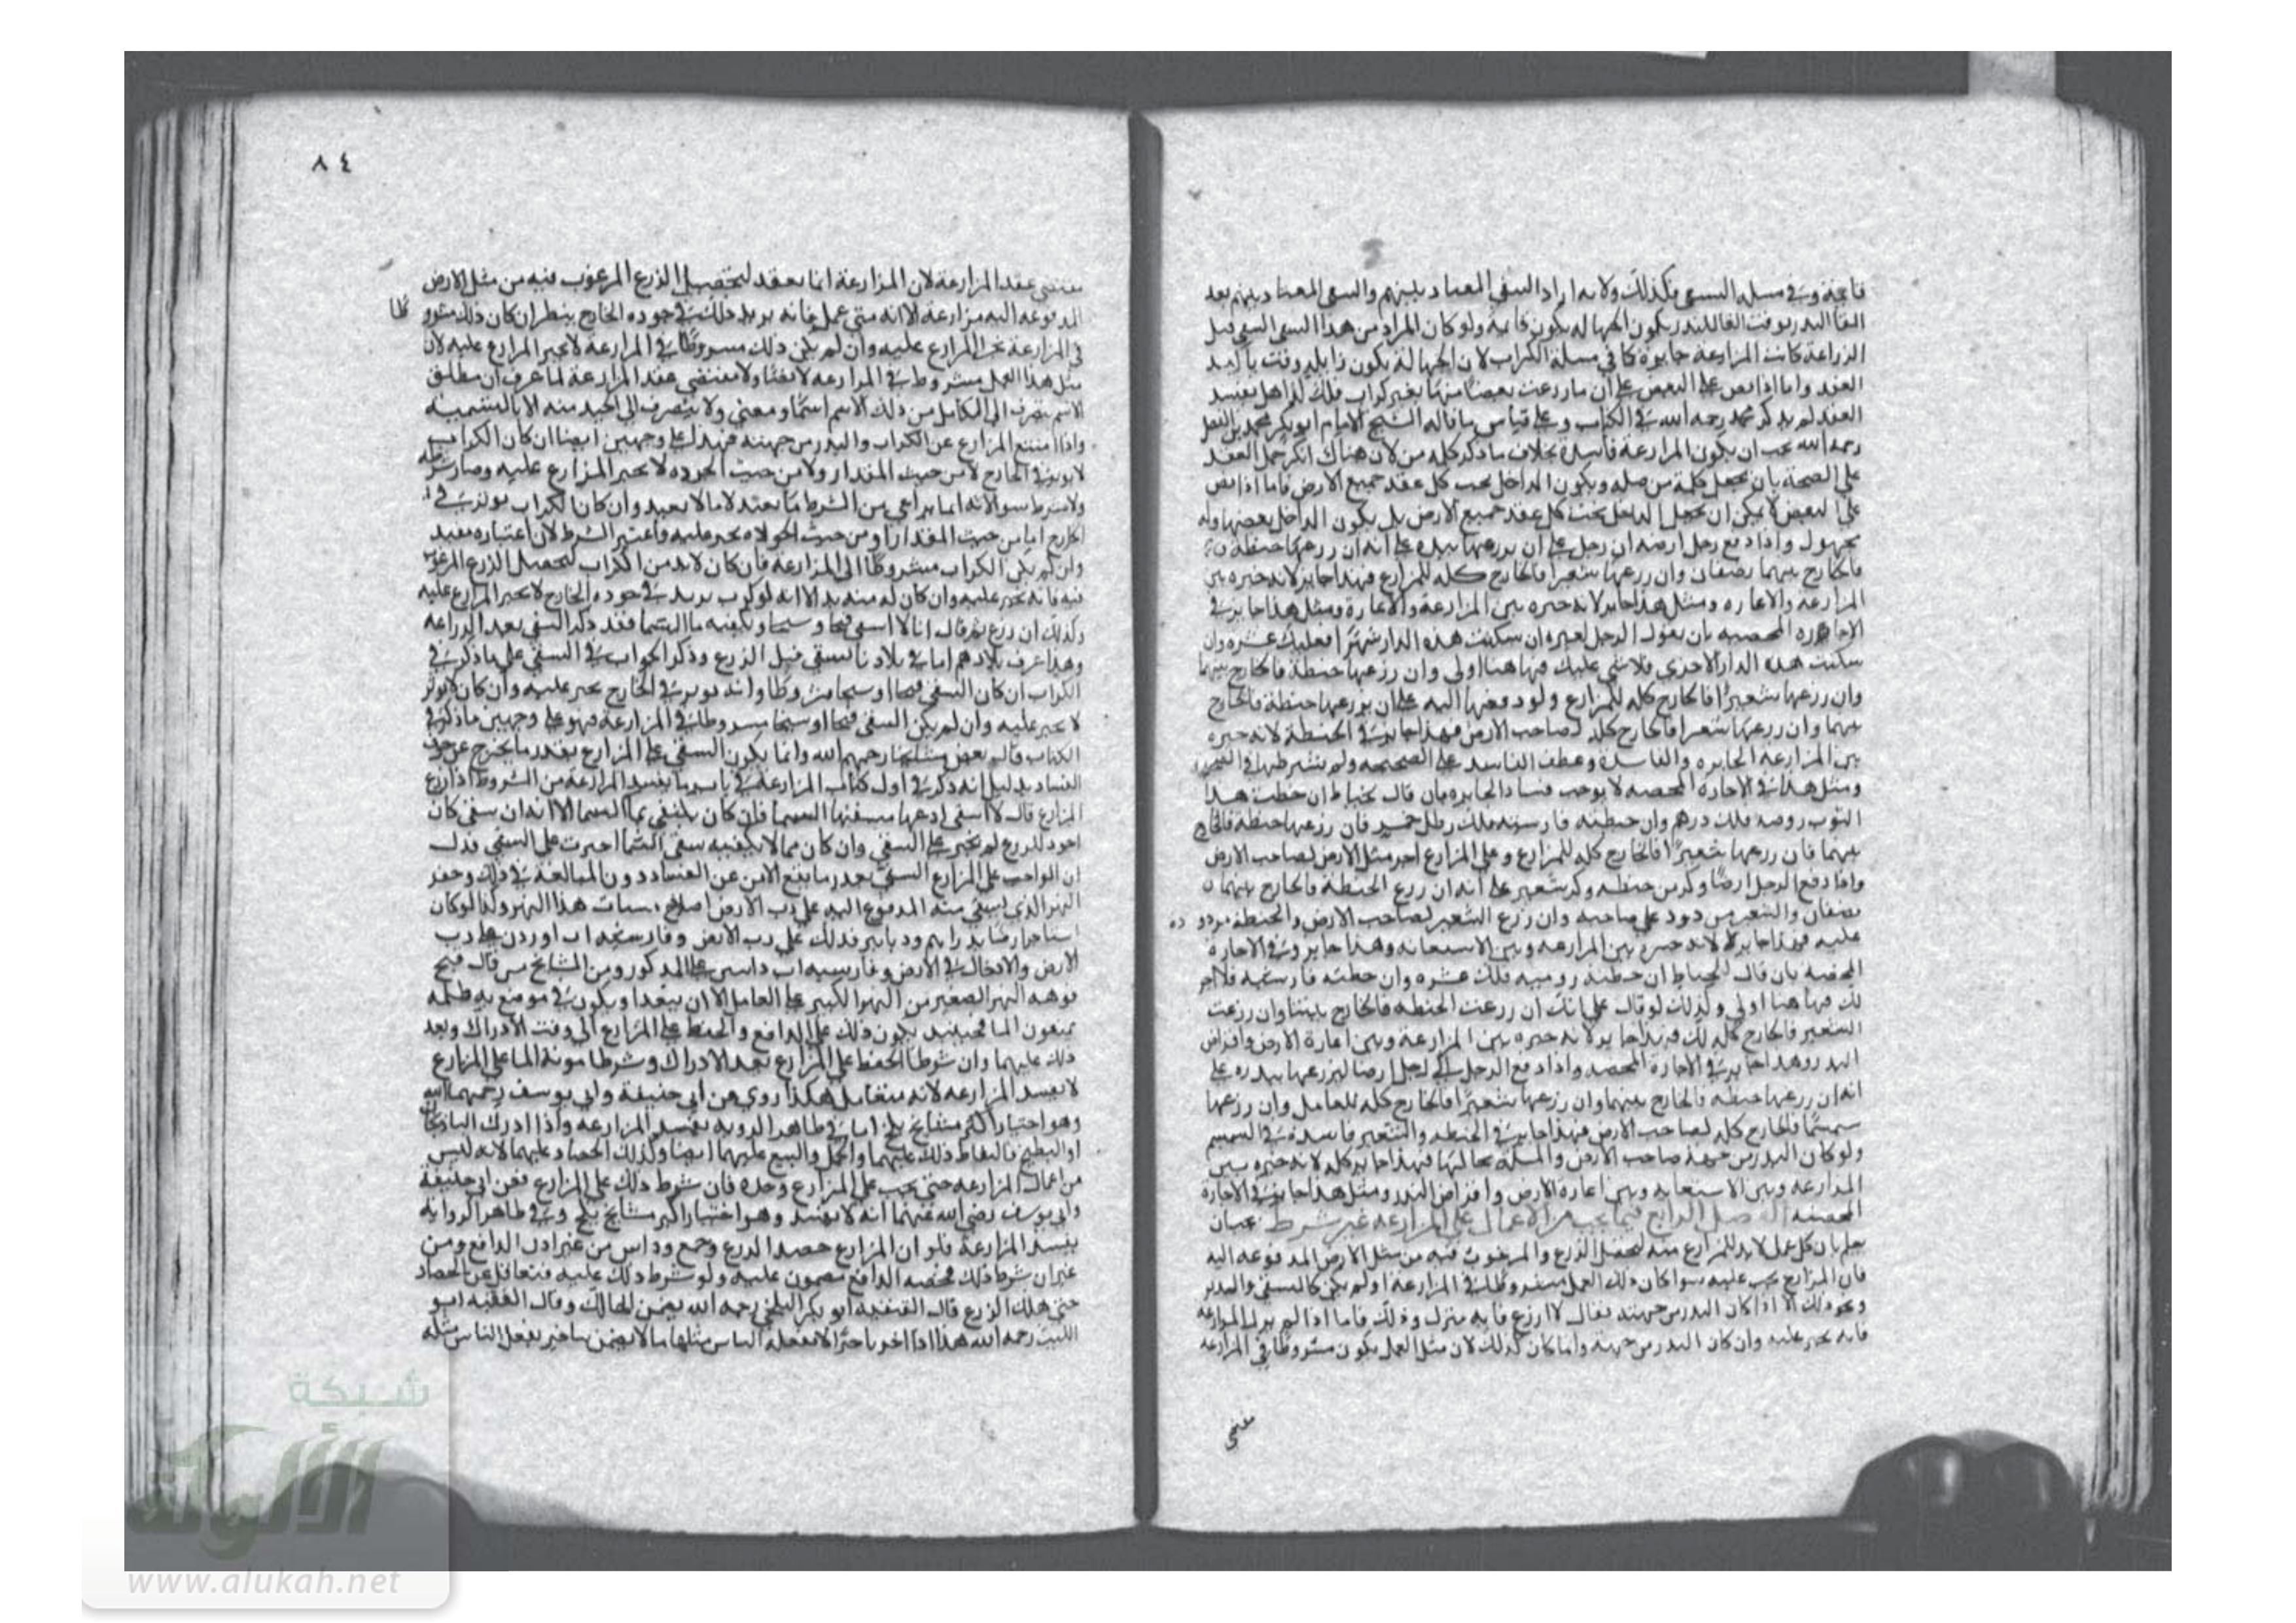 قائمة وفي مسئلة السقي فكذلك ولانه اراد السقي المعتاد بينهم والسقي المعتاد بينهم بعد
القا البدر بوقت القا البدر يكون الجهالة يكون قائمة ولو كان المراد من هذا السقي السقي قبل
الزراعة كانت المزارعة جايزة كما في مسلة الكراب لان الجهالة يكون زايله وقت تاكيد
العقد واما اذا نص على البعض على ان ما زرعت بعضا منها بغير كراب فلك كذا هل يفسد
العقد لم يذكر محمد رحمه الله في الكتاب وعلى قياس ما قاله الشيخ الامام ابو بكر محمد بن الفضل
رحمه الله يجب ان يكون المزارعة فاسدة بخلاف ما ذكر كله من لان هناك امكن حمل العقد
على الصحة بان تجعل كلمة من صله ويكون الداخل تحت كل عقد جميع الارض فاما اذا نص
على البعض لا يمكن ان يجعل الداخل تحت كل عقد جميع الارض بل يكون الداخل بعضها وانه
مجهول واذا دفع رجل ارضه الى رجل على ان يزرعها ببذره على انه ان زرعها حنطة
فالخارج بينهما نصفان وان زرعها شعيرا فالخارج كله للمزارع فهذا جايز لانه خيره بين
المزارعة والاعاره ومثل هذا جايز لانه خيره بين المزارعة والاعارة ومثل هذا جايز في
الاجاره المحضه بان يقول الرجل لغيره ان سكنت هذه الدار شهرا فعليك عشره وان
سكنت هذه الدار الاخرى فلا شي عليك فيها هنا اولى وان زرعها حنطة فالخارج بينهما
وان زرعها شعيرا فالخارج كله للمزارع ولو دفعها اليه على ان يزرعها حنطة فالخارج
بينهما وان زرعها شعيرا فالخارج كله لصاحب الارض فهذا جايز في الحنطة لانه خيره
بين المزارعة الجايزه والفاسده وعطف الفاسد على الصحيحه ولم يشترطها في
ومثل هذا في الاجاره المحضه لا يوجب فساد الجايزه بان قال لخياط ان خطت هذا
الثوب روميه فلك درهم وان خطته فارسيه فلك رطل خمر فان زرعها حنطة فالخارج
بينهما فان زرعها شعيرا فالخارج كله للمزارع وعلى المزارع اجر مثل الارض لصاحب الارض
واذا دفع الرجل ارضا وكر من حنطه وكر شعير على انه ان زرع الحنطة فالخارج بينهما
نصفان والشعير مردود على صاحبه وان زرع الشعير لصاحب الارض والحنطة مردوده
عليه فهذا جايز لانه خيره بين المزارعة وبين الاستعانه وهذا جايز في الاجارة
المحضه بان قال لخياط ان خطته روميه فلك عشره وان خطته فارسيه فلا اجر
لك فيها هنا اولى وكذلك لو قال على انك ان زرعت الحنطه فالخارج بيننا وان زرعت
الشعير فالخارج كله لك فهذا جايز لانه خيره بين المزارعة وبين اعارة الارض واقراض
البدر وهذا جايز في الاجارة المحضه واذا دفع الرجل الى رجل ارضا ليزرعها ببدره على
انه ان زرعها حنطه فالخارج بينهما وان زرعها شعيرا فالخارج كله للعامل وان زرعها
سمسما فالخارج كله لصاحب الارض فهذا جايز في الحنطه والشعير فاسدة في السمسم
ولو كان البدر من جهة صاحب الارض والمسلة بحالها فهذا جايز كله لانه خيره بين
المزارعه وبين الاستعانه وبين اعارة الارض واقراض البدر ومثل هذا جايز في الاجارة
المحضه الفصل الرابع فيما يجب من الاعمال على المزارعه غير شرط يجب ان
يعلم بان كل عمل لابد للمزارع منه لتحصيل الزرع والمرغوب فيه من مثل الارض المدفوعه اليه
فان المزارع يجب عليه سوا كان ذلك العمل مشروطا في المزارعة او لم يكن كالسقي والبدر
ونحو ذلك الا اذا كان البدر من جهته فقال لا ازرع فانه يترك وذلك فاما اذا لم يرد المزارعة
فانه يجبر عليه وان كان البدر من جهته وانما كان كذلك لان مثل العمل يكون مشروطا في المزارعة
مقتضى
٨٤
مقتضى عقد المزارعة لان المزارعة انما يعقد لتحصيل الزرع المرغوب فيه من مثل الارض
المدفوعه اليه مزارعة الا انه متى عمل فانه يزيد ذلك في جوده الخارج ينظر ان كان ذلك مشرو
طا
في المزارعة يجبر المزارع عليه وان لم يكن ذلك مشروطا في المزارعة لا يجبر المزارع عليه لان
مثل هذا العمل مشروط في المزارعه لا نصا ولا مقتضى عقد المزارعة لما عرف ان مطلق
الاسم ينصرف الى الكامل من ذلك الاسم اسما ومعنى ولا ينصرف الى الجيد منه الا بالتسمية
واذا امتنع المزارع عن الكراب والبدر من جهته فهذا على وجهين ايضا ان كان الكراب
لا يوثر في الخارج لا من حيث المقدار ولا من حيث الجوده لا يجبر المزارع عليه وصار شرطه
ولا شرط سوا لانه انما يراعى من الشرط ما يفيد لا ما لا يفيد وان كان الكراب يوثر في
الخارج اما من حيث المقدار او من حيث الجوده يجبر عليه واعتبر الشرط لان اعتباره مفيد
وان لم يكن الكراب مشروطا في المزارعة فان كان لابد من الكراب لتحصيل الزرع المرغوب
فيه فانه يجبر عليه وان كان له منه بد الا انه لو كرب يزيد في جوده الخارج لا يجبر المزارع عليه
وكذلك ان زرع ثم قال انا لا اسقي فيحا وسيحا وتكفيه ما السما فقد ذكر السقي بعد الزراعة
وهذا عرف بلادهم اما في بلادنا السقي قبل الزرع وذكر الجواب في السقي على ما ذكر في
الكراب ان كان السقي فيحا او سيحا مشروطا وانه يوثر في الخارج يجبر عليه وان كان لا يوثر
لا يجبر عليه وان لم يكن السقي فيحا او سيحا مشروطا في المزارعة فهو على وجهين ما ذكر في
الكتاب قال بعض مشايخنا رحمهم الله وانما يكون السقي على المزارع بقدر ما يخرج عن حد
الفساد بدليل انه ذكر في اول كتاب المزارعة في باب ما يفسد المزارعة من الشروط اذا زرع
المزارع قال لا اسقي ادعها تسقيها السما فان كان يكتفي بما السما الا انه ان سقى كان
اجود للزرع لم يجبر على السقي وان كان مما لا يكفيه سقي السما اجبرت على السقي فدل
ان الواجب على المزارع السقي بقدر ما يقع الامن عن الفساد دون المبالغة في ذلك وحفر
النهر الذي يسقى منه المدفوع اليه على رب الارض اصلاح هذا النهر ولذا لو كان
استاجر ارضا بدراهم ودنانير فذلك على رب الارض وفارسيته اب اوردن على رب
الارض والادخال في الارض وفارسيته اب داشتن على المذكور ومن المشايخ من قال فتح
فوهه النهر الصغير من النهر الكبير على العامل الا ان يبعد او يكون في موضع به ظلمه
يمنعون الما فحينئذ يكون ذلك على الدافع والحفظ على المزارع الى وقت الادراك وبعد
ذلك عليهما وان شرطا الحفظ على المزارع بعد الادراك وشرطا مونة الما على المزارع
لا يفسد المزارعه لانه متعامل هكذا روي عن ابي حنيفة وابي يوسف رحمهما الله
وهو اختيار اكثر مشايخ بلخ اما في ظاهر الروية يفسد المزارعه واذا ادرك الباذنجان
او البطيخ فالتقاط ذلك عليهما والحمل والبيع عليهما ايضا وكذلك الحصاد عليهما لانه ليس
من اعمال المزارعة حتى يجب على المزارع وحده فان شرط ذلك على المزارع فعن ابي حنيفة
وابي يوسف رضي الله عنهما انه لا يفسد وهو اختيار اكثر مشايخ بلخ وفي ظاهر الرواية
يفسد المزارعة فلو ان المزارع حصد الزرع وجمع وداس من غير اذن الدافع ومن
غير ان شرط ذلك فحصه الدافع مضمون عليه ولو شرط ذلك عليه فتغافل عن الحصاد
حتى هلك الزرع قال الفقيه ابو بكر البلخي رحمه الله يضمن الهالك وقال الفقيه ابو
الليث رحمه الله هذا اذا اخر تاخيرا لا يفعله الناس مثلها ما لا يضمن تاخير يفعل الناس مثله
شبكة
الألوكة
www.alukah.net